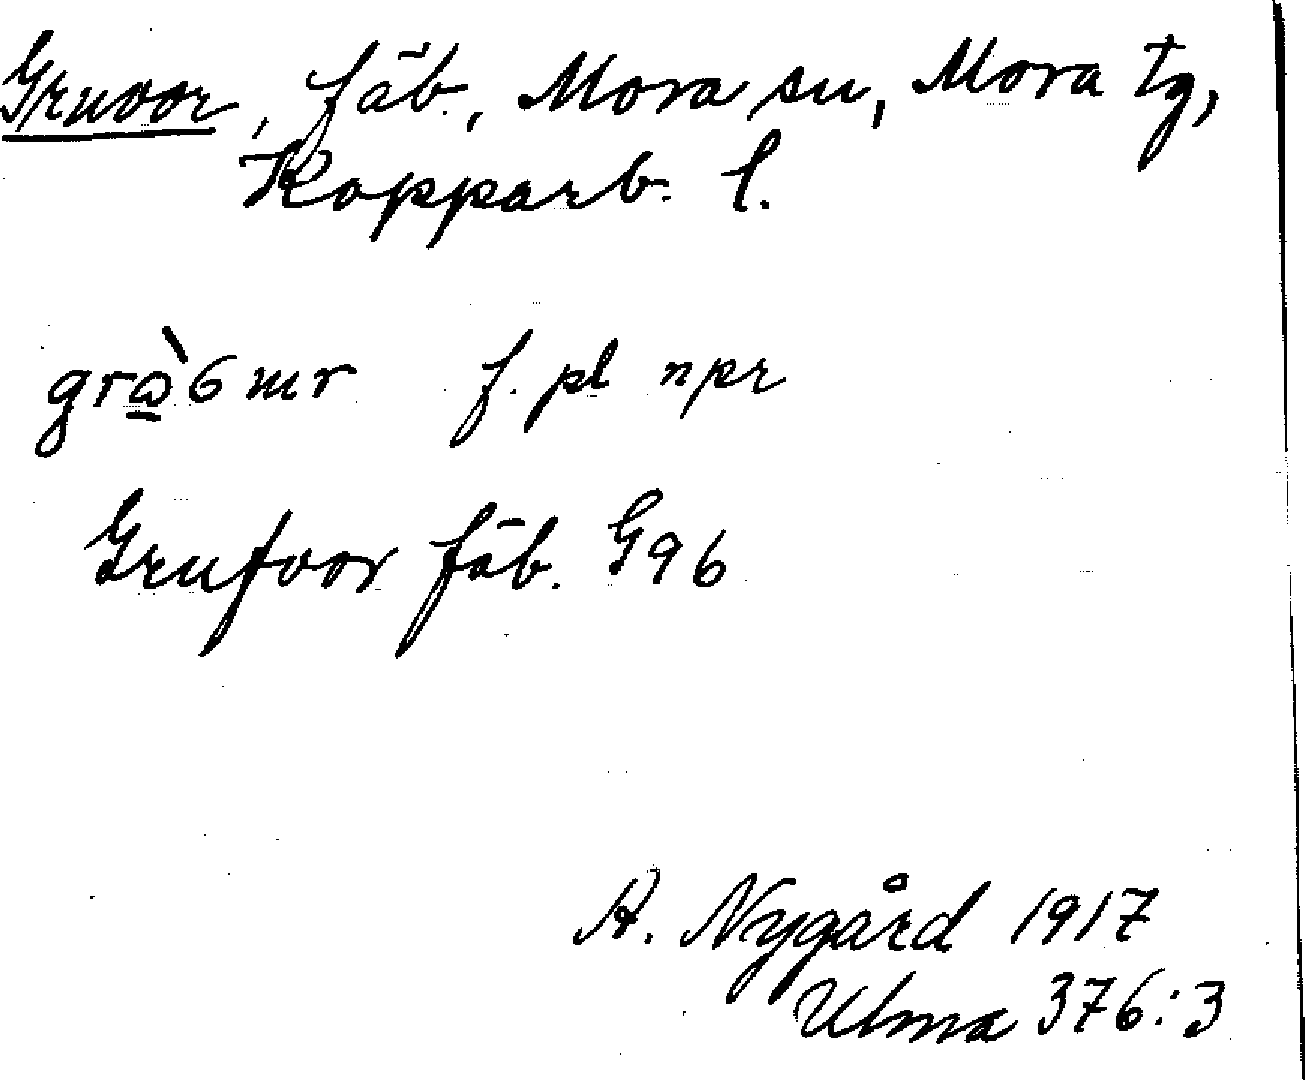 Gruvor, fäb., Mora sn, Mora tg,
Kopparb. l.
f. pl npr
Grufvor fäb. G96
A. Nygård 1917
Ulma 376:3